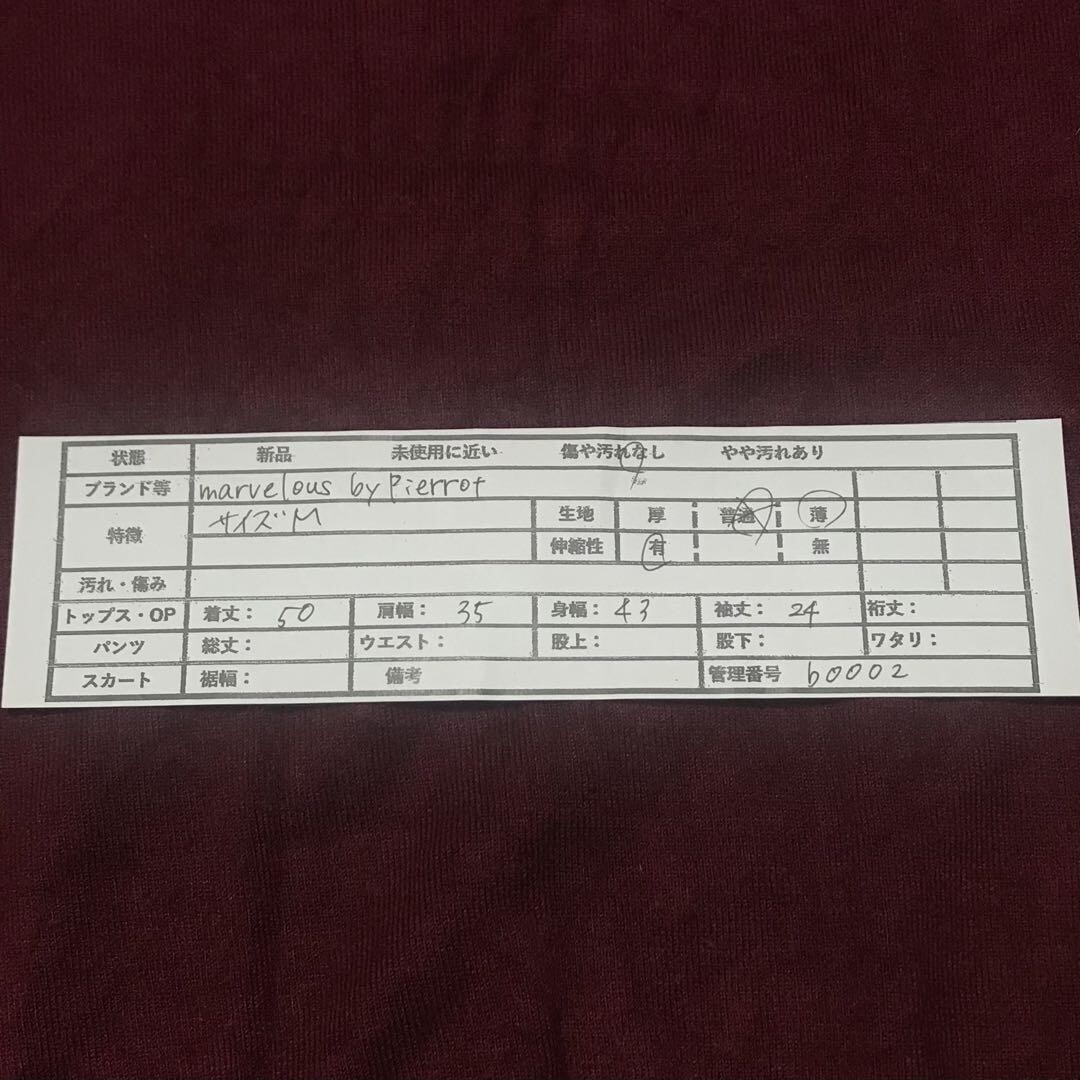 状態 新品 未使用に近い 傷や汚れなし やや汚れあり
ブランド等 marvelous by Pierrot
特徴 サイズM 生地 厚 普通 薄
伸縮性 有 無
汚れ・傷み
トップス・OP 着丈： 50 肩幅： 35 身幅： 43 袖丈： 24 裄丈：
パンツ 総丈： ウエスト： 股上： 股下： ワタリ：
スカート 裾幅： 備考 管理番号 b0002